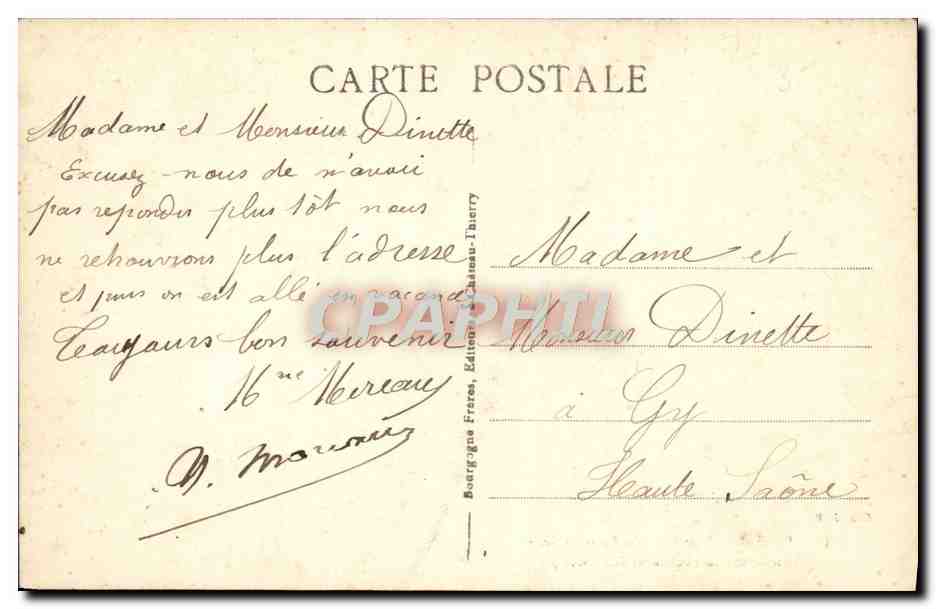 CARTE POSTALE
Madame et Monsieur Dinette
Excusez-nous de n'avoir
pas repondu plus tôt nous
ne retrouvions plus l'adresse
et puis on est allé en vacance
Toujours bon souvenir
Mme Moreau
Bourgogne Frères, Editeurs, Château-Thierry
Madame et
Monsieur Dinette
à Gy
Haute Saône
CPAPHIL